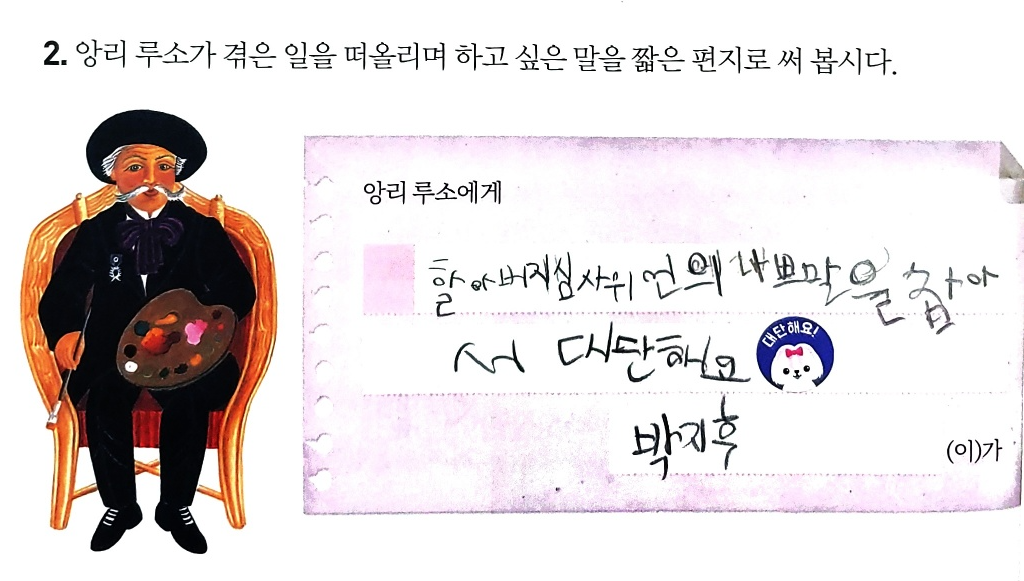 2. 앙리 루소가 겪은 일을 떠올리며 하고 싶은 말을 짧은 편지로 써 봅시다.
앙리 루소에게
할아버지심사위언의 나쁘말을 참아
서 대단해요
대단해요!
박지후
(이)가